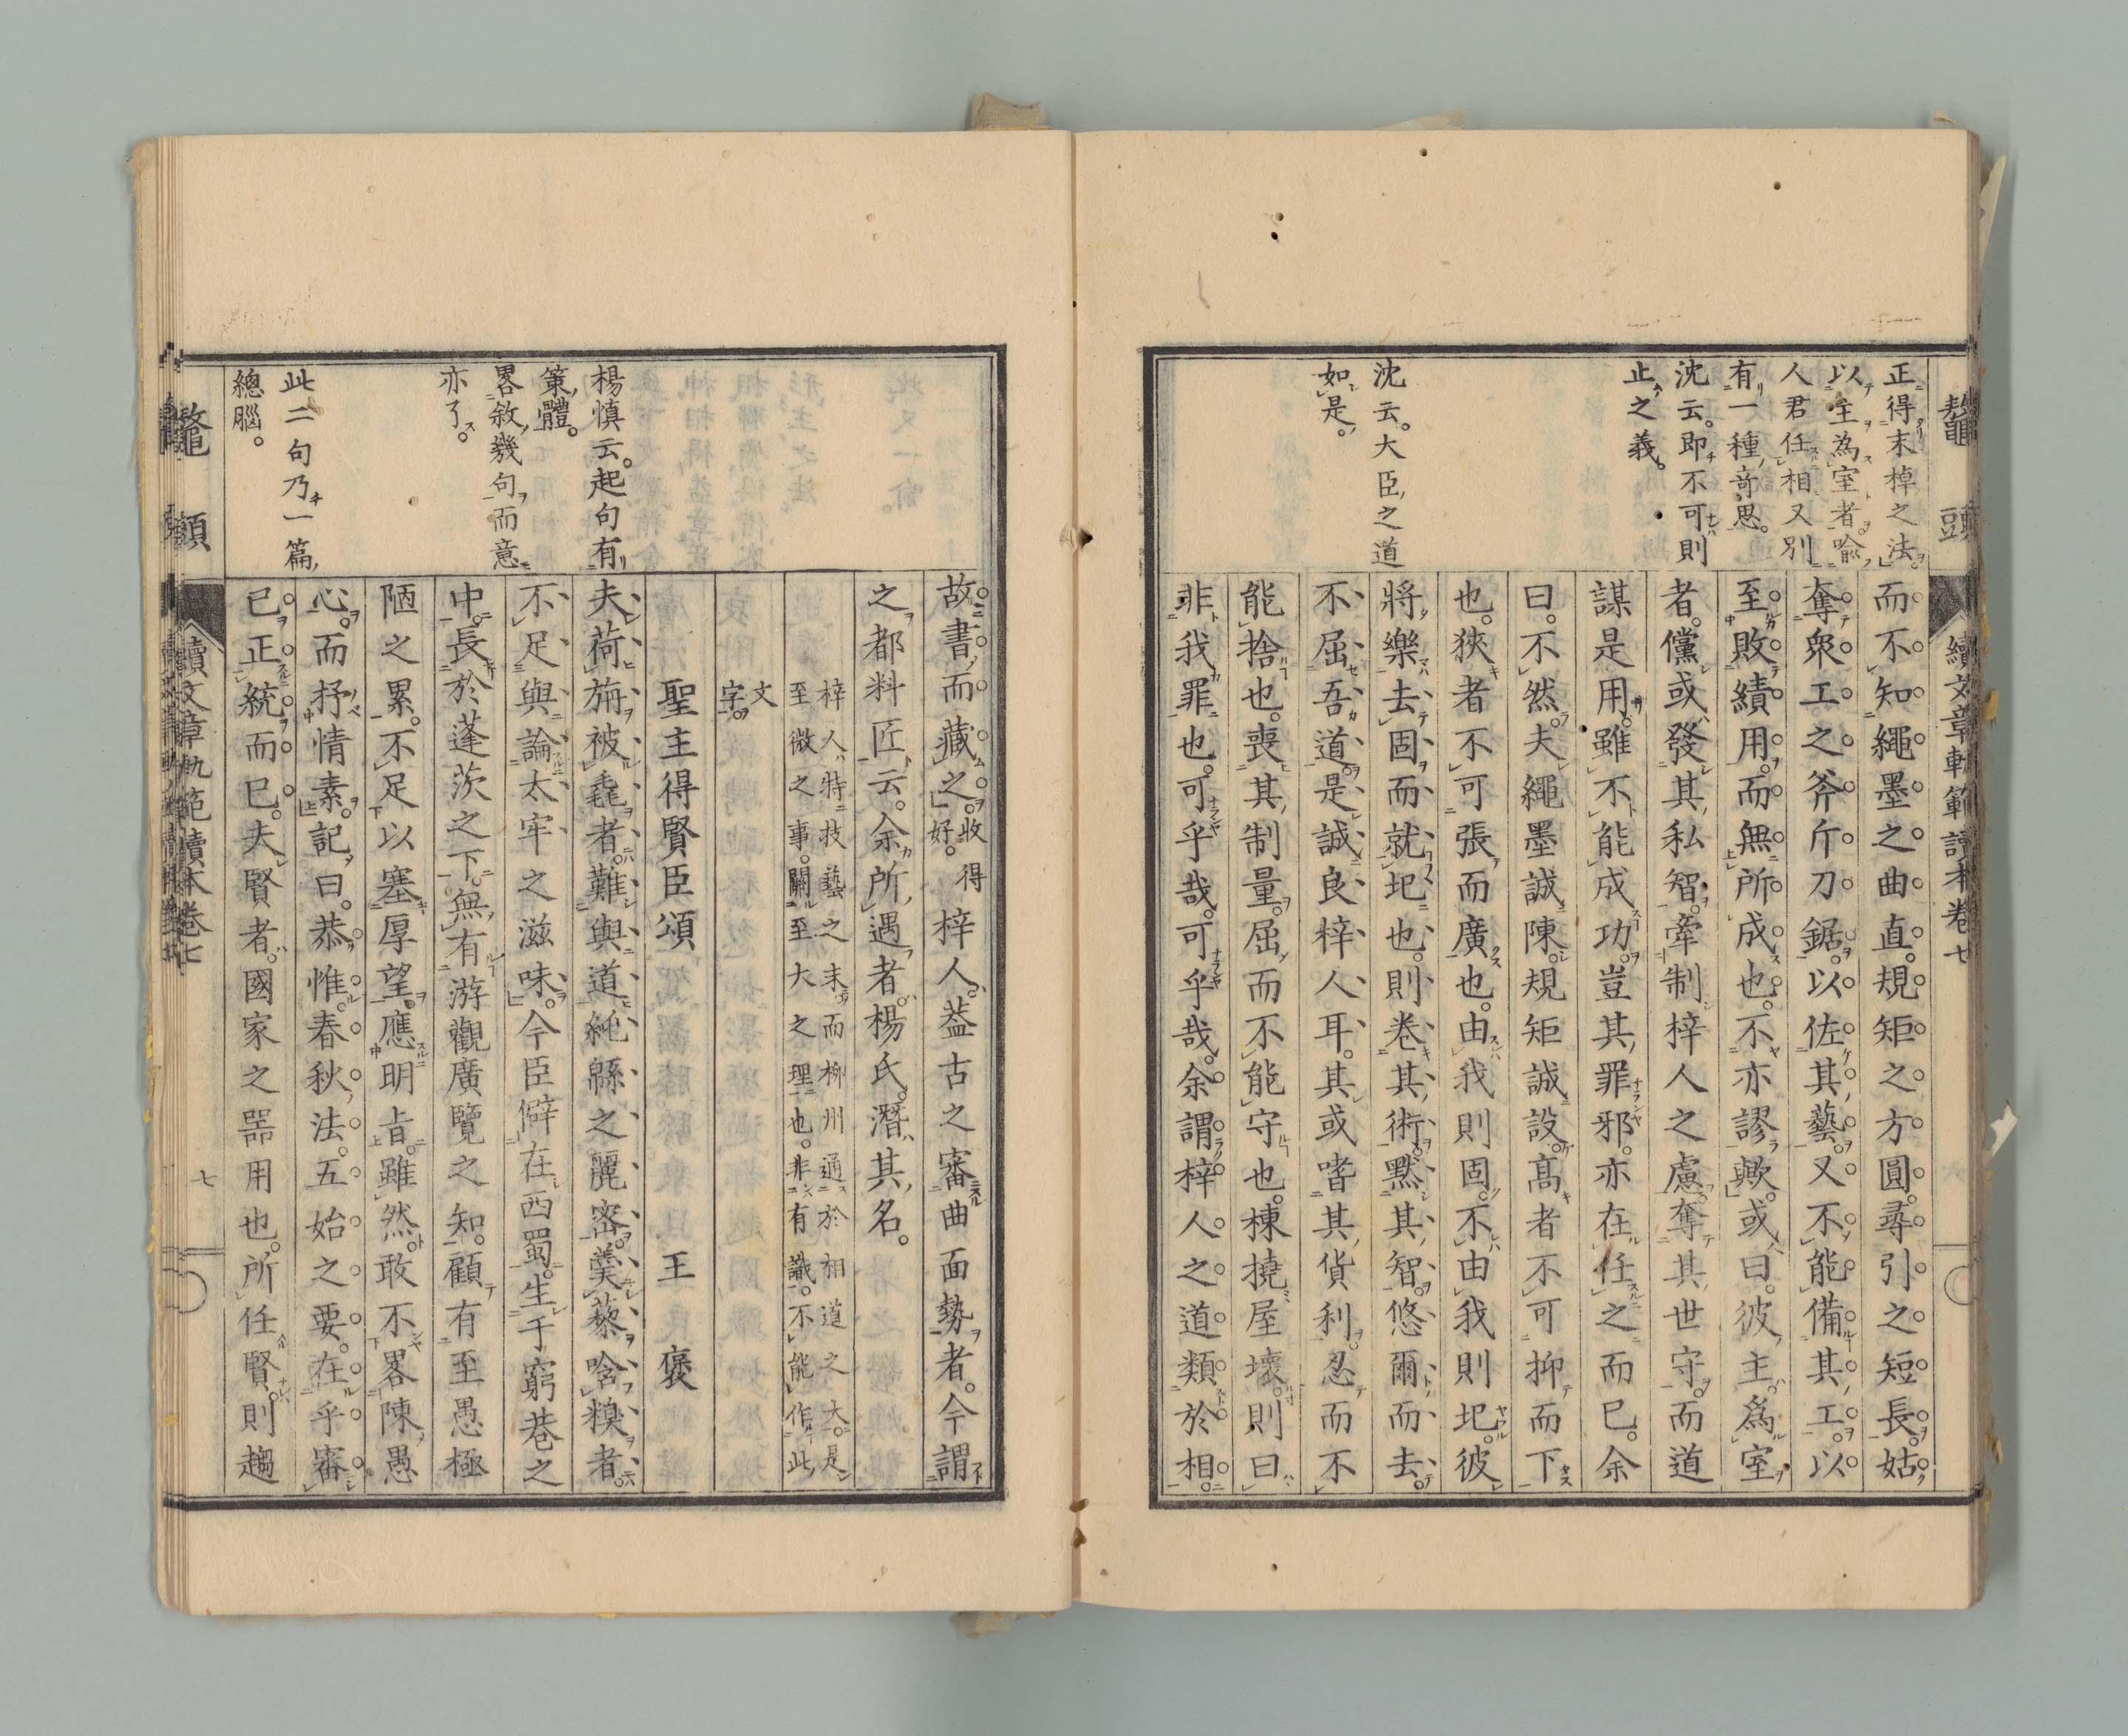 鼇頭
續文章軌範讀本卷七
正得末棹之法
以主為室者喩
人君任相又別
有一種奇思。
沈云。即不可則
止之義。
沈云。大臣之道
如是。
而不知繩墨之曲直。規矩之方圓。尋引之短長。姑
奪衆工之斧斤刀鋸。以佐其藝。又不能備其工。以
至敗績用。而無所成也。不亦謬歟。或曰。彼主爲室
者。儻或發其私智。牽制梓人之慮。奪其世守。而道
謀是用。雖不能成功。豈其罪邪。亦在任之而已。余
曰。不然。夫繩墨誠陳。規矩誠設。髙者不可抑而下
也。狹者不可張而廣也。由我則固。不由我則圮。彼
將樂去固而就圮也。則卷其術。默其智。悠爾而去。
不屈吾道。是誠良梓人耳。其或嗜其貨利。忍而不
能捨也。喪其制量。屈而不能守也。棟撓屋壞。則曰
非我罪也。可乎哉。可乎哉。余謂梓人之道類於相。
故書而藏之。收得好。梓人。葢古之審曲面勢者。今謂
之都料匠云。余所遇者。楊氏。潛其名。
梓人特技藝之末。而柳州通於相道之大。是
至微之事。關至大之理也。非有識。不能作此
文字。
聖主得賢臣頌　王褒
楊慎云。起句有
策體。
畧敘幾句而意
亦了。
此二句乃一篇
總腦。
夫荷旃被毳者。難與道純緜之麗密。羹藜唅糗者。
不足與論太牢之滋味。今臣僻在西蜀。生于窮巷之
中。長於蓬茨之下。無有游觀廣覽之知。顧有至愚極
陋之累。不足以塞厚望。應明旨。雖然。敢不畧陳愚
心。而抒情素。記曰。恭惟春秋法。五始之要。在乎審
已正統而已。夫賢者。國家之噐用也。所任賢。則趨
鼇頭
續文章軌範讀本卷七
七